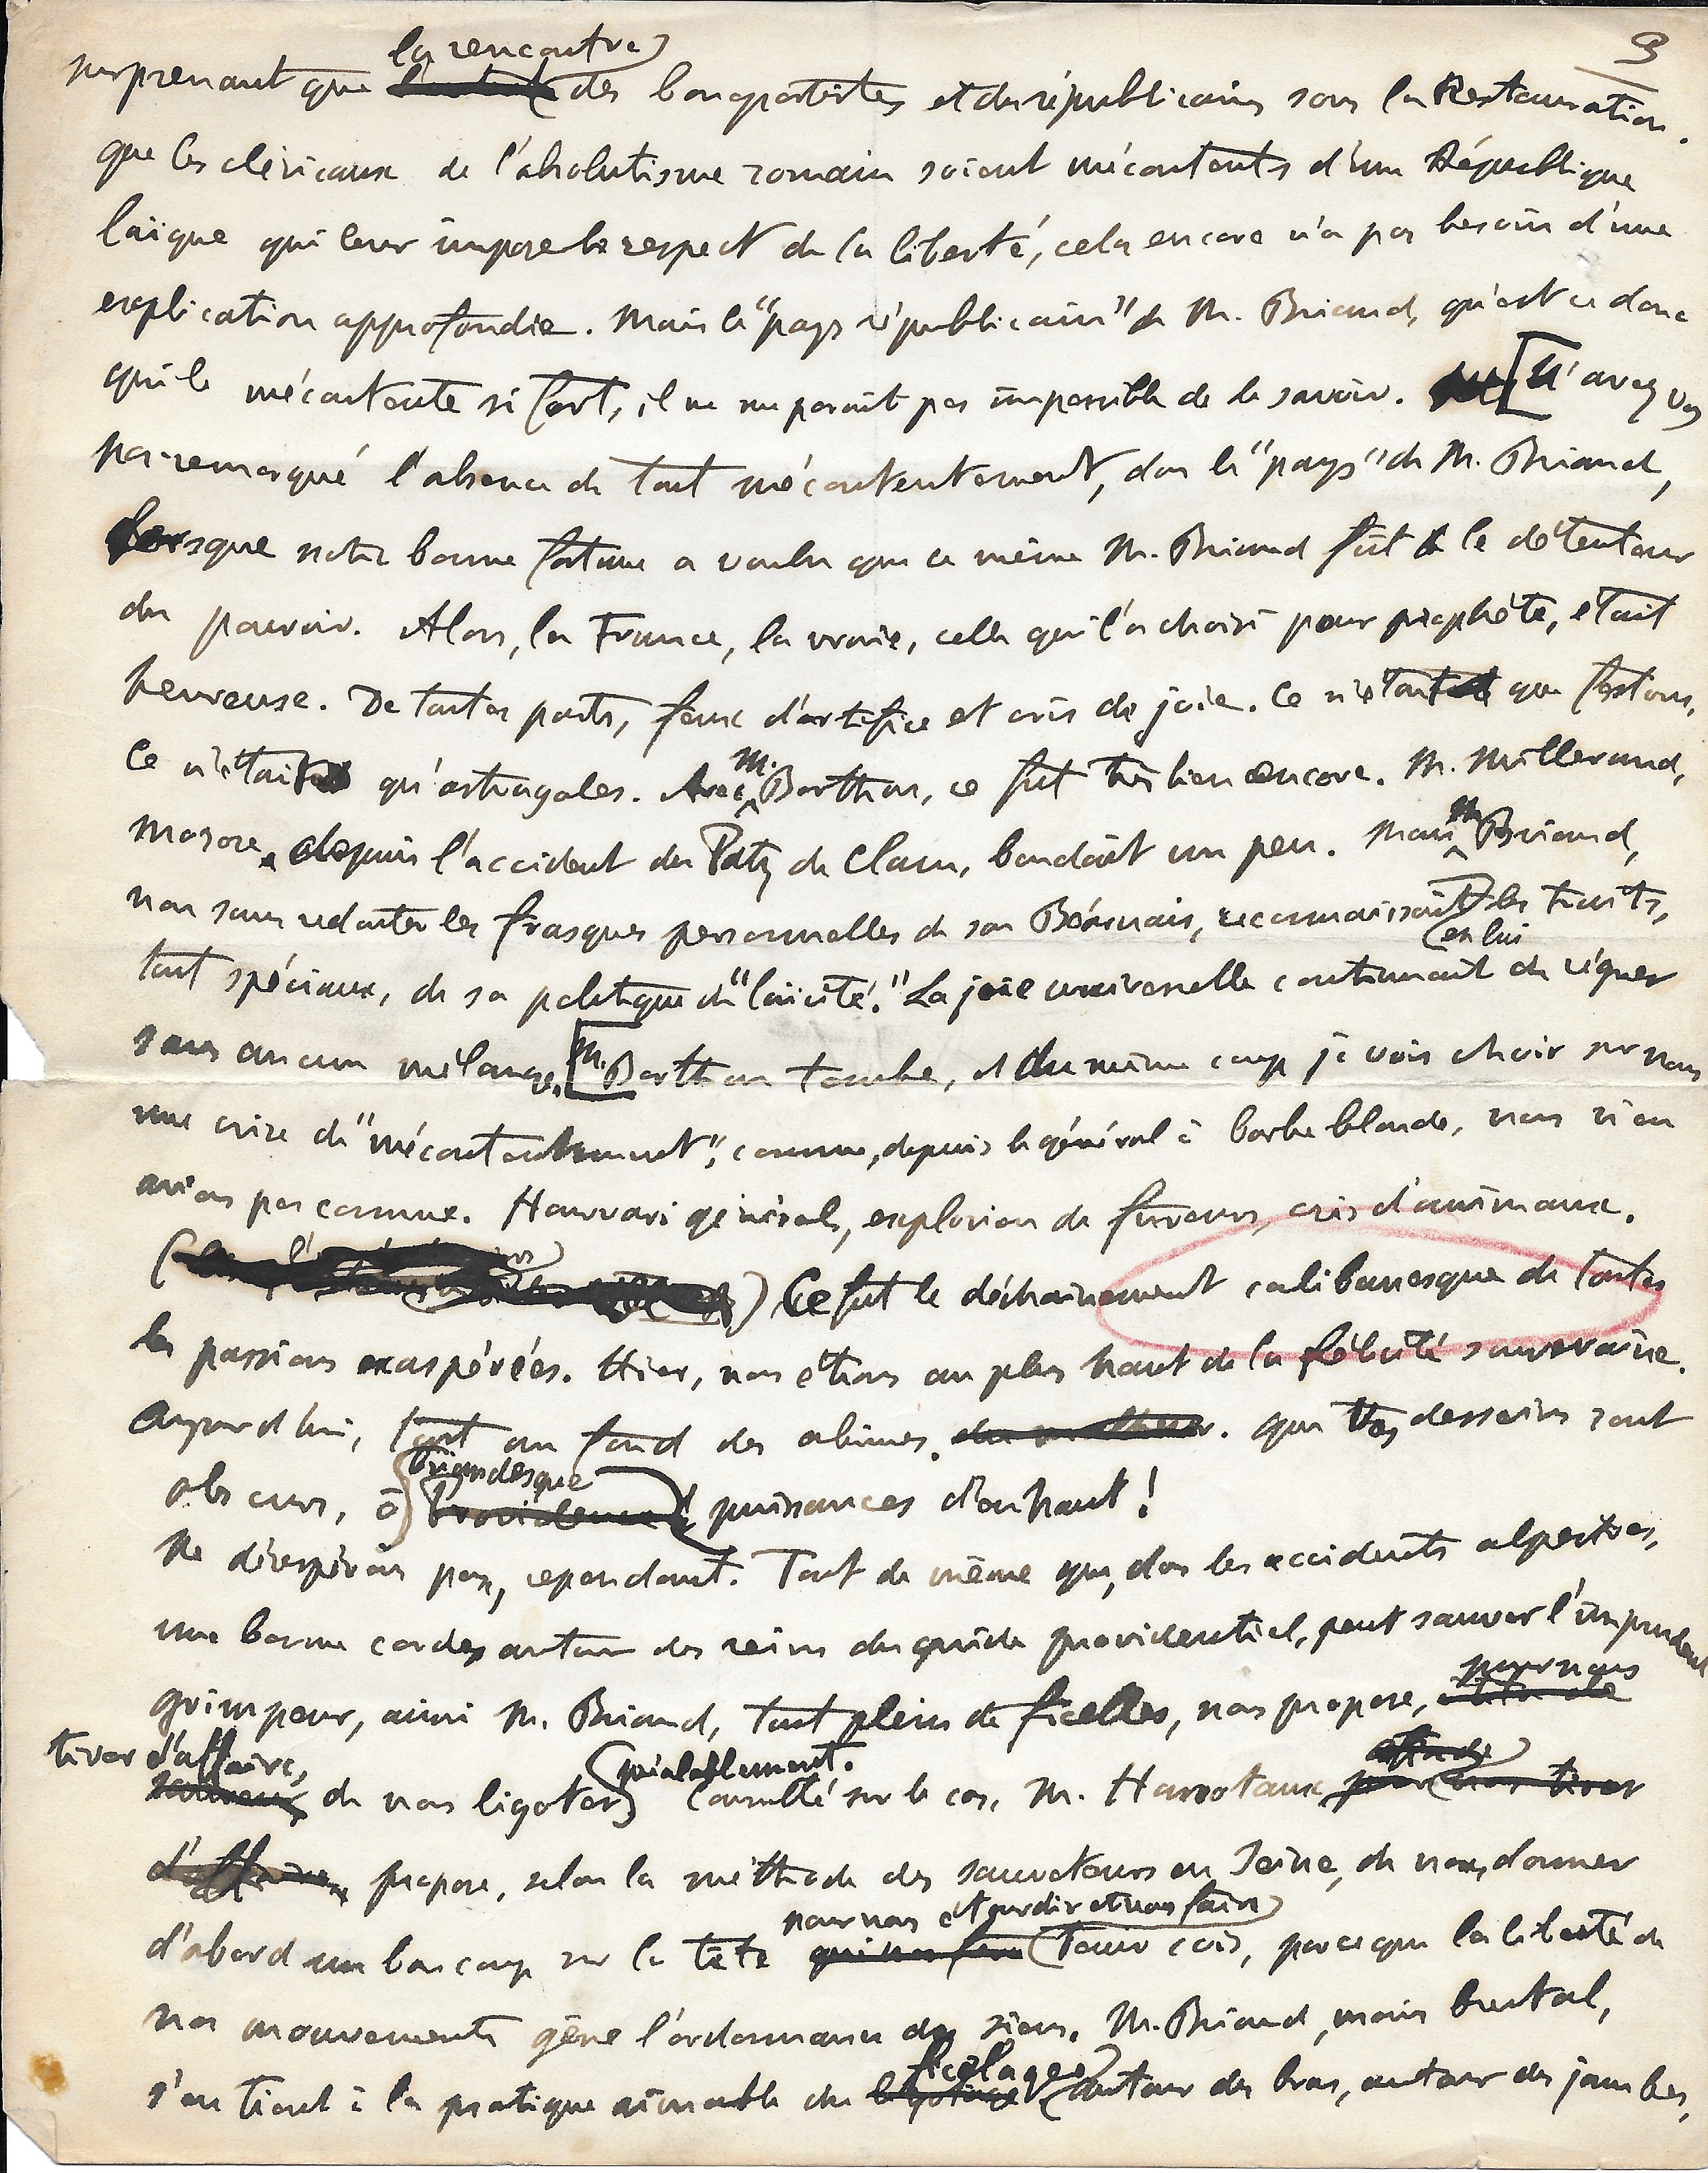 3
la rencontre
surprenant que des bonapartistes et des républicains sous la Restauration.
que les cléricaux de l'absolutisme romain soient mécontents d'une République
laïque qui leur impose le respect de la liberté, cela encore n'a pas besoin d'une
explication approfondie. Mais le "pays républicain" de M. Briand, qu'est ce donc
qui le mécontente si fort, il ne me paraît pas impossible de le savoir. [N'avez vous
pas remarqué l'absence de tout mécontentement, dans le "pays" de M. Briand,
lorsque notre bonne fortune a voulu que ce même M. Briand fût le détenteur
du pouvoir. Alors, la France, la vraie, celle qui l'a choisi pour prophète, était
heureuse. De toutes parts, feux d'artifice et cris de joie. Ce n'était que festons,
Ce n'était qu'astragales. Avec M. Barthou, ce fut très bien encore. M. Millerand,
morose, depuis l'accident du Paty de Clam, boudait un peu. Mais M. Briand,
non sans redouter les frasques personnelles de son Béarnais, reconnaissait en lui les traits,
tout spéciaux, de sa politique de "laïcité." La joie universelle continuait de régner
sans aucun mélange. [M. Barthou tombe, et du même coup je vois choir sur nous
une crise de "mécontentement", comme, depuis le général à barbe blonde, nous n'en
avions pas connue. Hourvari général, explosion de fureurs, cris d'animaux.
Ce fut le déchaînement calibanesque de toutes
les passions exaspérées. Hier, nous étions au plus haut de la félicité souveraine.
Aujourd'hui, tout au fond des abîmes. que Vos desseins sont
obscurs, ô briandesque Providence puissances d'en haut!
Ne désespérons pas, cependant. Tout de même que, dans les accidents alpestres,
une bonne corde, autour des reins du guide providentiel, peut sauver l'imprudent
grimpeur, ainsi M. Briand, tout plein de ficelles, nous propose, pour nous
tirer d'affaire, de nous ligoter préalablement. Consulté sur le cas, M. Hanotaux, pour nous tirer
d'affaire, propose, selon la méthode des sauveteurs en Seine, de nous donner
d'abord un bon coup sur la tête pour nous étourdir et nous faire tenir cois, parce que la liberté de
nos mouvements gêne l'ordonnance des siens. M. Briand, moins brutal,
s'en tient à la pratique aimable du ficelage autour des bras, autour des jambes,